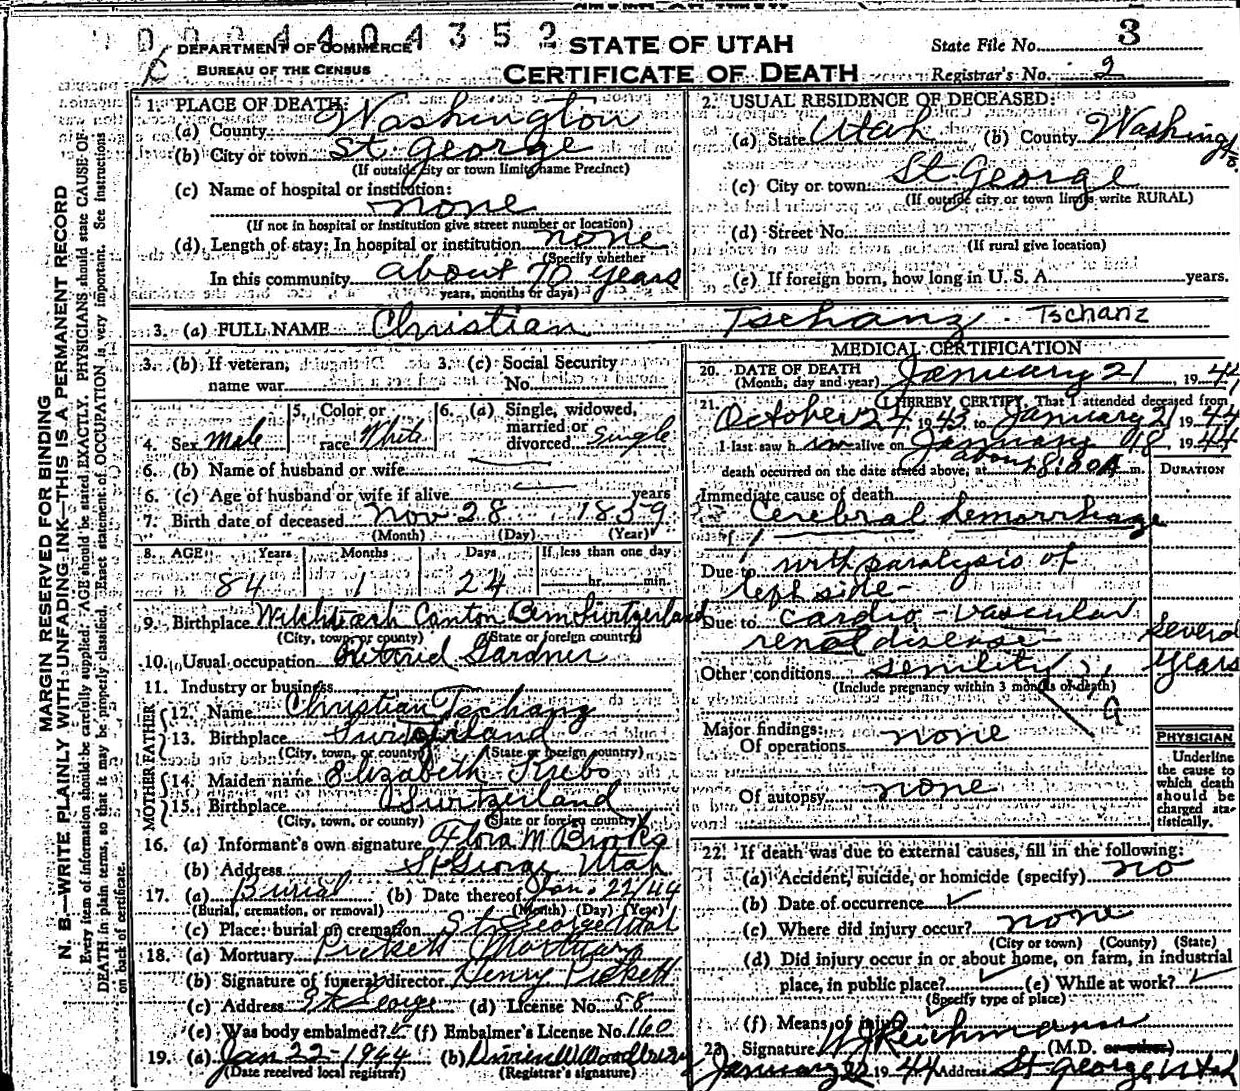 0 0 0 4 4 0 4 3 5 2
DEPARTMENT OF COMMERCE
BUREAU OF THE CENSUS
STATE OF UTAH
CERTIFICATE OF DEATH
State File No. 3
Registrar's No. 2
MARGIN RESERVED FOR BINDING
N. B.—WRITE PLAINLY WITH UNFADING INK—THIS IS A PERMANENT RECORD
Every item of information should be carefully supplied. AGE should be stated EXACTLY. PHYSICIANS should state CAUSE OF
DEATH in plain terms, so that it may be properly classified. Exact statement of OCCUPATION is very important. See instructions
on back of certificate.
1. PLACE OF DEATH:
(a) County Washington
(b) City or town St. George
(If outside city or town limits name Precinct)
(c) Name of hospital or institution:
none
(If not in hospital or institution give street number or location)
(d) Length of stay: In hospital or institution none
(Specify whether
In this community about 70 years
years, months or days)
2. USUAL RESIDENCE OF DECEASED:
(a) State Utah (b) County Washington
(c) City or town St George
(If outside city or town limits write RURAL)
(d) Street No.
(If rural give location)
(e) If foreign born, how long in U. S. A. years.
3. (a) FULL NAME Christian Tschanz Tschanz
3. (b) If veteran, name war
3. (c) Social Security No.
4. Sex Male
5. Color or race White
6. (a) Single, widowed, married or divorced Single
6. (b) Name of husband or wife
6. (c) Age of husband or wife if alive years
7. Birth date of deceased Nov 28 1859
(Month) (Day) (Year)
8. AGE Years Months Days If less than one day
84 1 24 hr. min.
9. Birthplace Canton Bern Switzerland
(City, town, or county) (State or foreign country)
10. Usual occupation Retired Gardner
11. Industry or business
FATHER
12. Name Christian Tschanz
13. Birthplace Switzerland
(City, town, or county) (State or foreign country)
MOTHER
14. Maiden name Elizabeth Krebs
15. Birthplace Switzerland
(City, town, or county) (State or foreign country)
16. (a) Informant's own signature Flora M Brooks
(b) Address St George Utah
17. (a) Burial (b) Date thereof Jan. 22/44
(Burial, cremation, or removal) (Month) (Day) (Year)
(c) Place: burial or cremation St George Utah
18. (a) Mortuary Pickett Mortuary
(b) Signature of funeral director Henry Pickett
(c) Address St George (d) License No. 58
(e) Was body embalmed? ✓ (f) Embalmer's License No. 160
19. (a) Jan 22 1944 (b)
(Date received local registrar) (Registrar's signature)
MEDICAL CERTIFICATION
20. DATE OF DEATH
(Month, day and year) January 21, 1944
21. I HEREBY CERTIFY, That I attended deceased from
October 24 1943 to January 21 1944
I last saw him alive on January 18 1944
death occurred on the date stated above, at about 8:00 A m.
DURATION
Immediate cause of death
Cerebral hemorrhage
Due to with paralysis of
left side -
Due to cardio-vascular
renal disease
several
years
Other conditions senility
(Include pregnancy within 3 months of death)
Major findings:
Of operations none
Of autopsy none
PHYSICIAN
Underline
the cause to
which death
should be
charged sta-
tistically.
22. If death was due to external causes, fill in the following:
(a) Accident, suicide, or homicide (specify) no
(b) Date of occurrence ✓
(c) Where did injury occur? none
(City or town) (County) (State)
(d) Did injury occur in or about home, on farm, in industrial
place, in public place? ✓ (e) While at work? ✓
(Specify type of place)
(f) Means of injury ✓
23. Signature Reichmann (M.D. or other)
January 22 1944 Address St George Utah